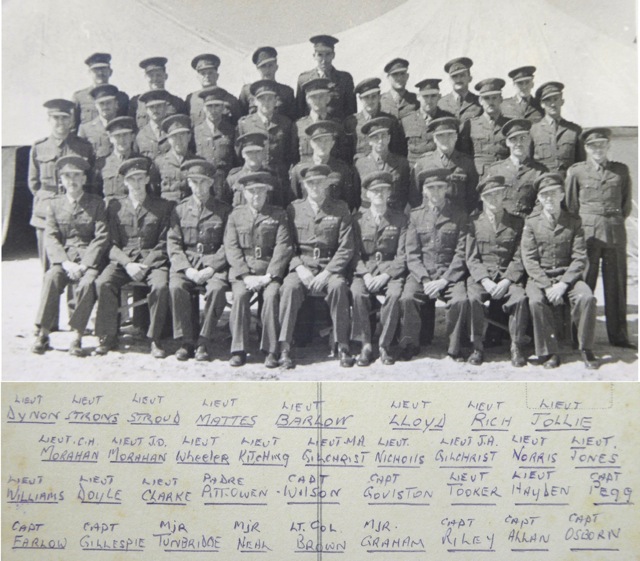 LIEUT LIEUT LIEUT LIEUT LIEUT LIEUT LIEUT LIEUT
DYNON STRONG STROUD MATTES BARLOW LLOYD RICH JOLLIE
LIEUT.C.H. LIEUT J.D. LIEUT LIEUT LIEUT.M.A. LIEUT. LIEUT J.A. LIEUT LIEUT.
MORAHAN MORAHAN Wheeler Kitching GILCHRIST NICHOLLS GILCHRIST NORRIS JONES
LIEUT LIEUT LIEUT PADRE CAPT CAPT LIEUT LIEUT CAPT
WILLIAMS DOYLE CLARKE PITT-OWEN WILSON GOULSTON TOOKER HAYDEN Pegg
CAPT CAPT MJR MJR LT. COL. MJR. CAPT CAPT CAPT
FARLOW GILLESPIE TUNBRIDGE NEAL BROWN GRAHAM RILEY ALLAN OSBORN